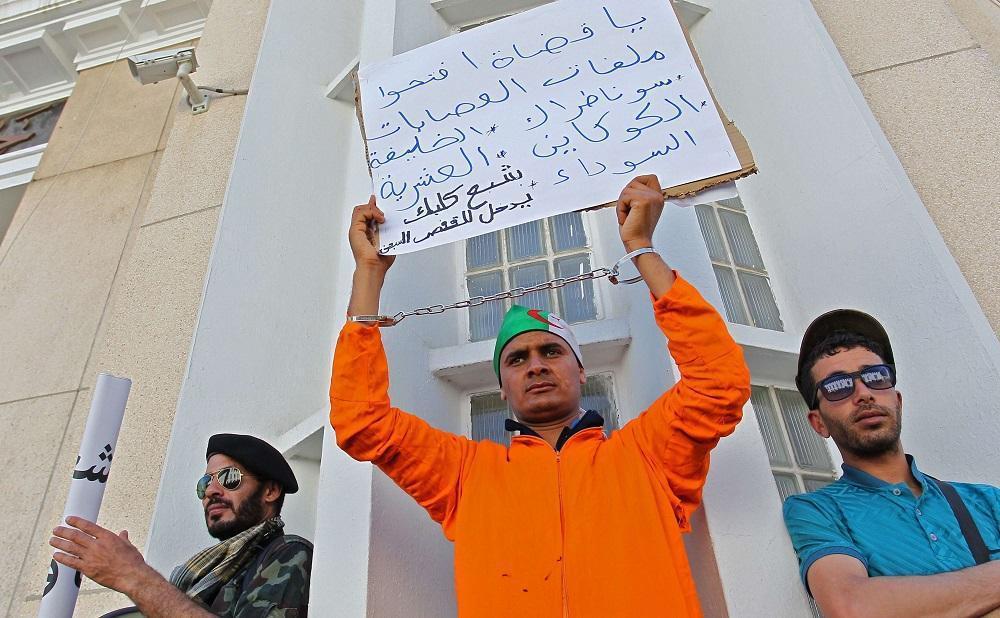 يا قضاة افتحوا
ملفات العصابات
سوناطراك * الخليفة
* الكوكايين * العشرية
السوداء
* شبع كلبك
* يدخل للقفص السبعي